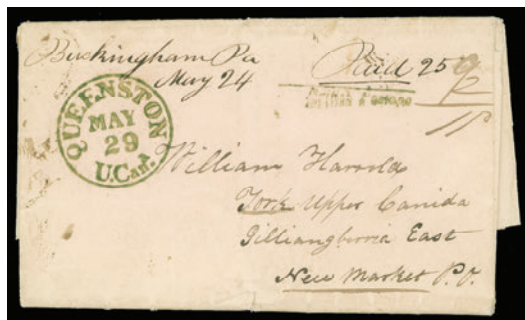 Buckingham Pa
May 24
Paid 25
QUEENSTON
MAY
29
U.Can.
William Harrold
York Upper Canida
East
New Market P.O.